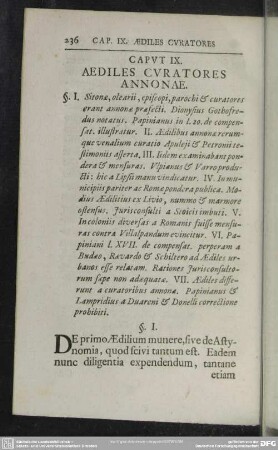 236 CAP. IX. ÆDILES CVRATORES
CAPVT IX.
AEDILES CVRATORES
ANNONAE.
§. I. Sitonæ, olearii, episcopi, parochi & curatores
erant annonæ præfecti. Dionysius Gothofre-
dus notatus. Papinianus in l. 20. de compen-
sat. illustratur. II. Ædilibus annonæ rerum-
que venalium curatio Apuleji & Petronii te-
stimoniis asserta. III. Iidem examinabant pon-
dera & mensuras. Vlpianus & Varro produ-
cti: hic a Lipsii manu vindicatur. IV. In mu-
nicipiis pariter ac Romæ pondera publica. Mo-
dius Ædilitius ex Livio, nummo & marmore
ostensus. Jurisconsulti a Stoicis imbuti. V.
In coloniis diversas a Romanis fuisse mensu-
ras contra Villalpandum evincitur. VI. Pa-
piniani l. XVII. de compensat. perperam a
Budæo, Rævardo & Schiltero ad Ædiles ur-
banos esse relatam. Rationes Jurisconsulto-
rum sæpe non adæquatæ. VII. Ædiles diffe-
runt a curatoribus annonæ. Papinianus &
Lampridius a Duareni & Donelli correctione
prohibiti.
§. I.
DE primo Ædilium munere, sive de Asty-
nomia, quod scivi tantum est. Eadem
nunc diligentia expendendum, tantane
etiam